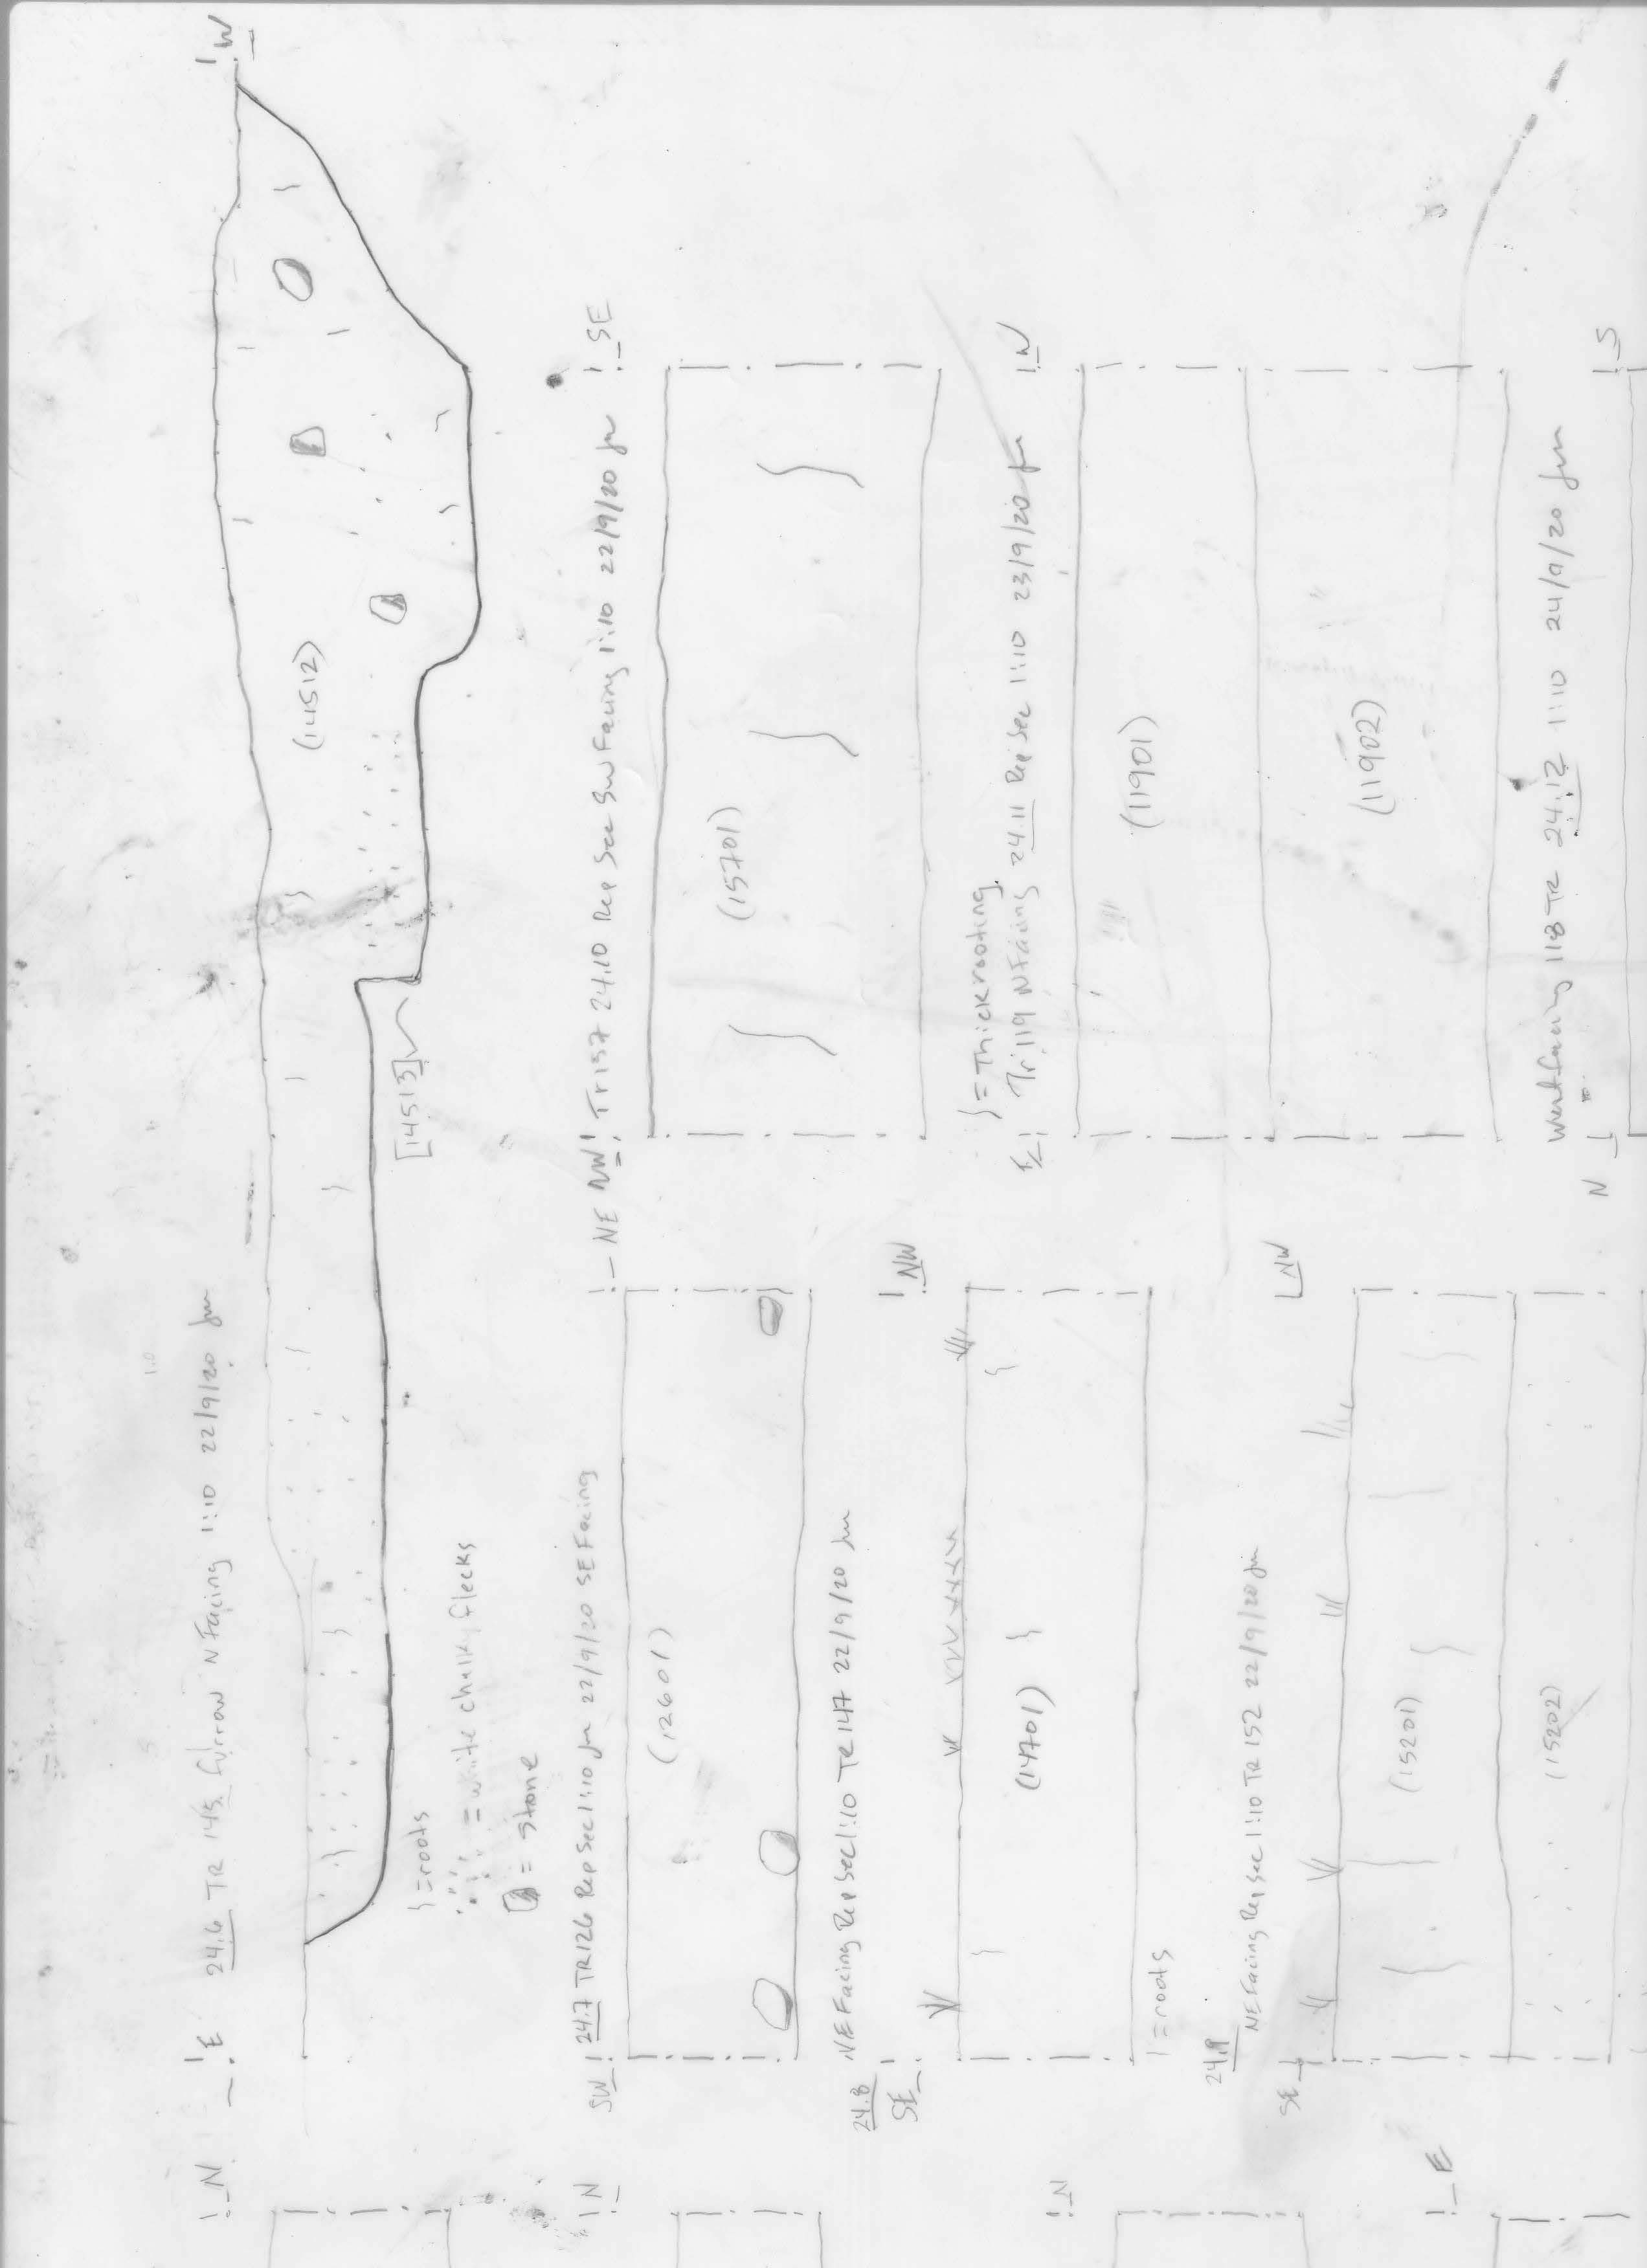 24.6 TR 145. furrow N Facing 1:10 22/9/20 jm
E
W
(14512)
[14513]
} = roots
= white chalky flecks
= stone
24.7 TR126 Rep Sec 1:10 jm 22/9/20 SE Facing
SW
NE
(12601)
24.8
NE Facing Rep Sec 1:10 TR 147 22/9/20 jm
SE
NW
(14701)
} = roots
24.9
NE Facing Rep Sec 1:10 TR 152 22/9/20 jm
SE
NW
(15201)
(15202)
NW
Tr157 24.10 Rep Sec SW Facing 1:10 22/9/20 jm
SE
(15701)
} = Thick rooting
Tr.119 N Facing 24.11 Rep Sec 1:10 23/9/20 jm
E
W
(11901)
(11902)
West facing 118 TR 24.12 1:10 24/9/20 jm
N
S
N
N
N
E